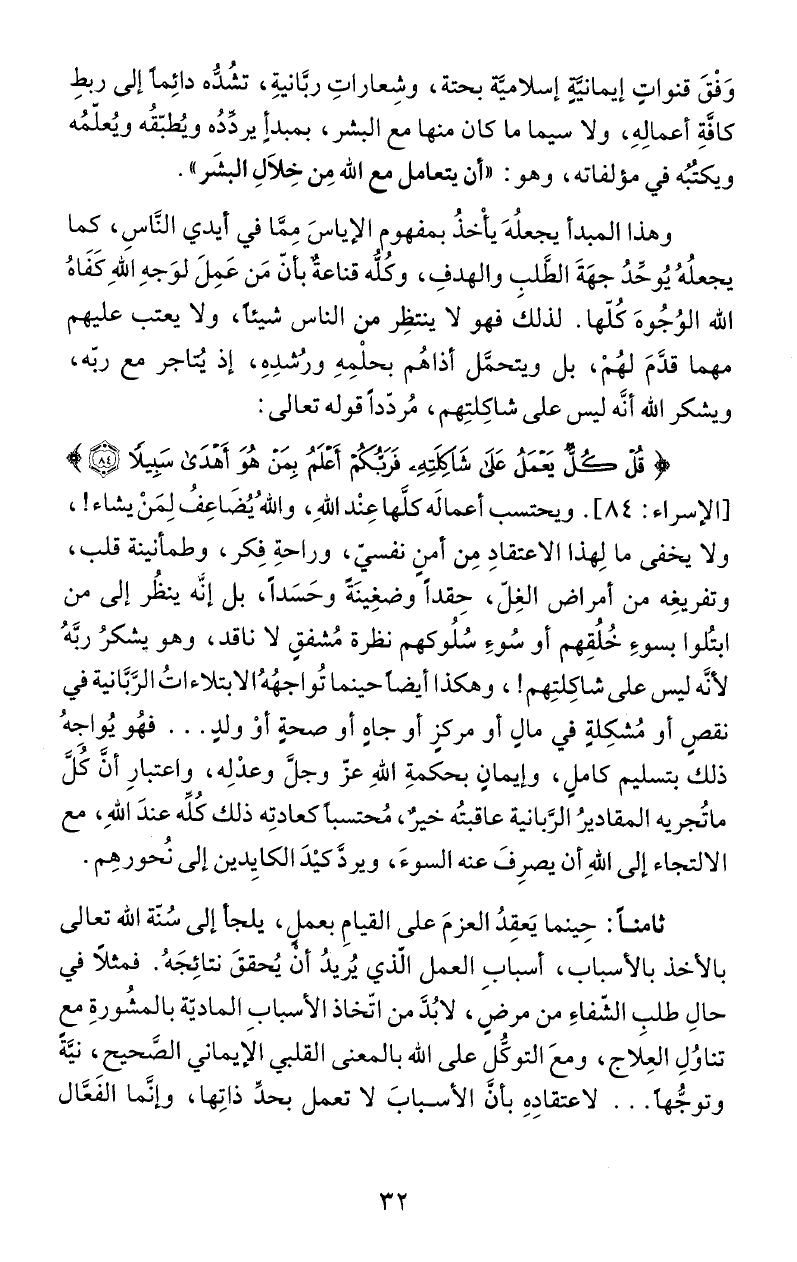 وَفْقَ قنواتٍ إيمانيَّةٍ إسلاميَّة بحتة، وشِعاراتِ ربَّانيةِ، تشُدُّه دائِماً إلى ربطِ
كافَّةِ أعمالِهِ، ولا سيما ما كان منها مع البشر، بمبدأٍ يردِّدُه ويُطبّقُه ويُعلّمُه
ويكتبُه في مؤلفاته، وهو: «أن يتعامل مع الله مِن خِلاَلِ البشَر».
وهذا المبدأ يجعلُهَ يأخذُ بمفهومِ الإياسَ مِمَّا في أيدي النَّاسِ، كما
يجعلُهُ يُوحِّدُ جهَةَ الطَّلبِ والهدفِ، وكُلُّه قناعةٌ بأنّ مَن عَمِلَ لوَجهِ اللهِ كَفَاهُ
الله الوُجُوهَ كُلّها. لذلك فهو لا ينتظِر من الناس شيئاً، ولا يعتب عليهم
مهما قدَّمَ لهُمْ، بل ويتحمَّل أذاهُم بحلْمِهِ ورُشدِهِ، إذ يُتاجر مع ربّه،
ويشكر الله أنَّه ليس على شاكِلتِهم، مُردّداً قوله تعالى:
﴿ قُلْ كُلٌّ يَعْمَلُ عَلَىٰ شَاكِلَتِهِۦ فَرَبُّكُمْ أَعْلَمُ بِمَنْ هُوَ أَهْدَىٰ سَبِيلًا ٨٤ ﴾
[الإسراء: ٨٤]. ويحتسب أعمالَه كلَّها عِنْد اللهِ، واللهُ يُضَاعِفُ لِمَنْ يشاء!،
ولا يخفى ما لِهذا الاعتقادِ مِن أمنٍ نفسيّ، وراحةِ فِكر، وطمأنينة قلب،
وتفريغِه من أمراض الغِلّ، حِقداً وضغِينَةً وحَسَداً، بل إنَّه ينظُر إلى من
ابتُلوا بسوءِ خُلُقِهم أو سُوءِ سُلُوكهم نظرة مُشفقٍ لا ناقد، وهو يشكرُ ربَّهُ
لأنَّه ليس على شاكِلتِهم!، وهكذا أيضاً حينما تُواجِهُهُ الابتلاءاتُ الرَّبَّانية في
نقصٍ أو مُشكِلةٍ في مالٍ أو مركزٍ أو جاهٍ أو صحةٍ أوْ ولدٍ... فهُو يُواجِهُ
ذلك بتسليم كاملٍ، وإيمانٍ بحكمةِ اللهِ عزّ وجلَّ وعدْلِه، واعتبارِ أنَّ كُلَّ
ماتُجريه المقاديرُ الرَّبانية عاقبتُه خيرٌ، مُحتسباً كعادتِه ذلك كُلَّه عندَ اللهِ، مع
الالتجاء إلى اللهِ أن يصرِفَ عنه السوءَ، ويردَّ كيْدَ الكايدين إلى نُحورِهِم.
ثامنـاً: حِينما يَعقِدُ العزمَ على القيامِ بعملٍ، يلجأ إلى سُنّة الله تعالى
بالأخذ بالأسباب، أسبابِ العمل الَّذي يُريدُ أنْ يُحققَ نتائِجَهُ. فمثلاً في
حالِ طلبِ الشّفاءِ من مرضٍ، لابُدَّ من اتّخاذ الأسبابِ الماديّة بالمشُورةِ مع
تناوُلِ العِلاج، ومعَ التوكُّل على الله بالمعنى القلبي الإيماني الصَّحيح، نيَّةً
وتوجُّهاً... لاعتقادِهِ بأنَّ الأسـبابَ لا تعمل بحدِّ ذاتِها، وإنَّما الفَعَّال
٣٢